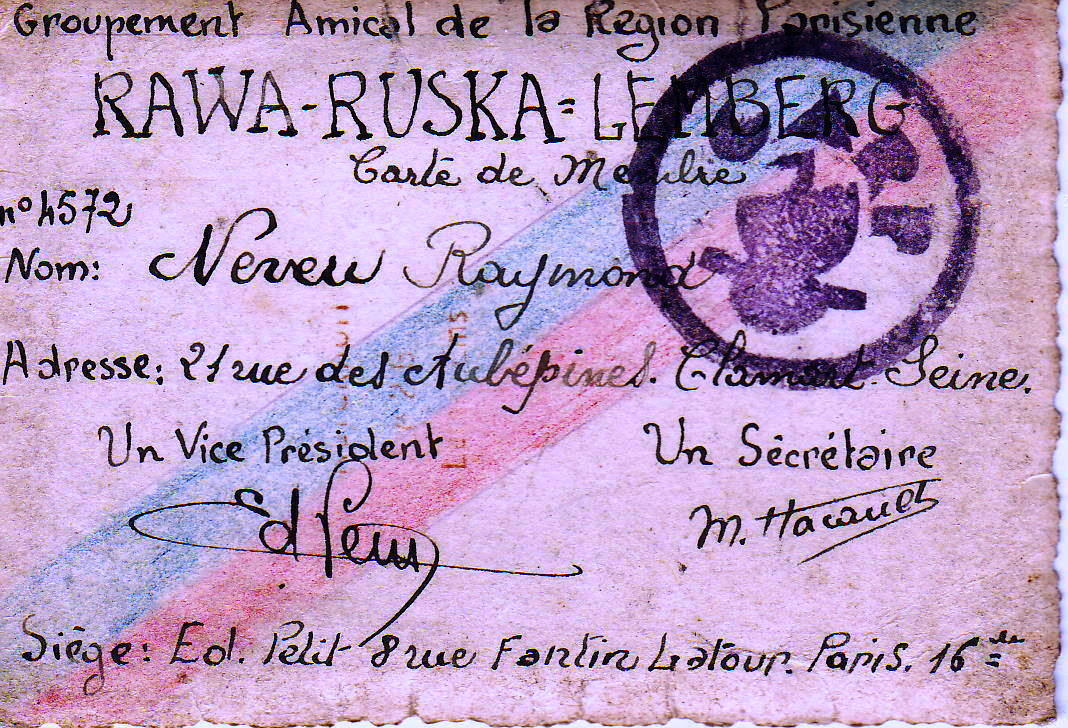 Groupement Amical de la Région Parisienne
RAWA-RUSKA=LEMBERG
Carte de Membre
n° 4572
Nom: Neveu Raymond
Adresse: 21 rue des Aubépines. Clamart. Seine.
Un Vice Président Un Sécrétaire
Ed M. Hacault
Siège: Ed. Petit 8 rue Fantin Latour. Paris. 16